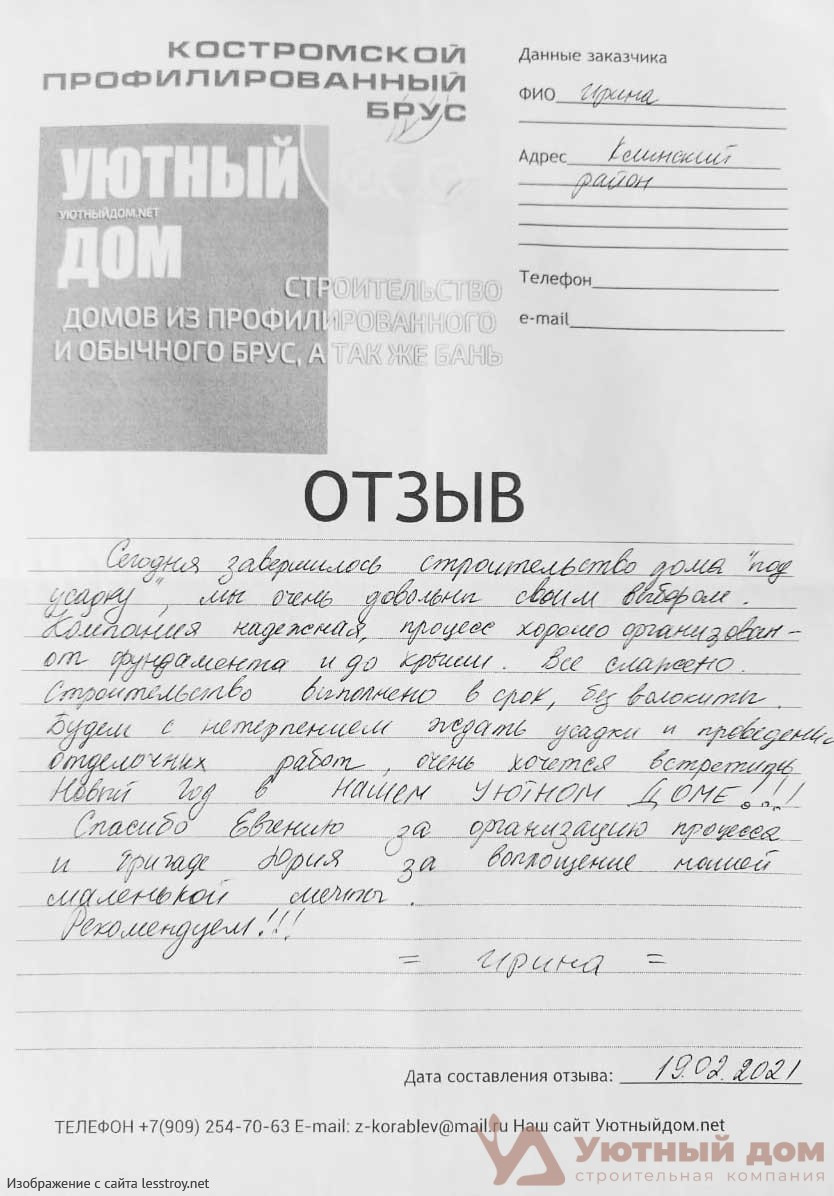 КОСТРОМСКОЙ
ПРОФИЛИРОВАННЫЙ
БРУС
УЮТНЫЙ
УЮТНЫЙДОМ.NET
ДОМ
СТРОИТЕЛЬСТВО
ДОМОВ ИЗ ПРОФИЛИРОВАННОГО
И ОБЫЧНОГО БРУС, А ТАК ЖЕ БАНЬ
Данные заказчика
ФИО Ирина
Адрес Клинский
район
Телефон
e-mail
ОТЗЫВ
Сегодня завершилось строительство дома "под
усадку", мы очень довольны своим выбором.
Компания надежная, процесс хорошо организован -
от фундамента и до крыши. Все слажено.
Строительство выполнено в срок, без волокиты.
Будем с нетерпением ждать усадки и проведения
отделочных работ, очень хочется встретить
Новый Год в НАШЕМ УЮТНОМ ДОМЕ!!!
Спасибо Евгению за организацию процесса
и бригаде Юрия за воплощение нашей
маленькой мечты.
Рекомендуем!!!
= Ирина =
Дата составления отзыва: 19.02.2021
ТЕЛЕФОН +7(909) 254-70-63 E-mail: z-korablev@mail.ru Наш сайт Уютныйдом.net
Уютный дом
строительная компания
Изображение с сайта lesstroy.net